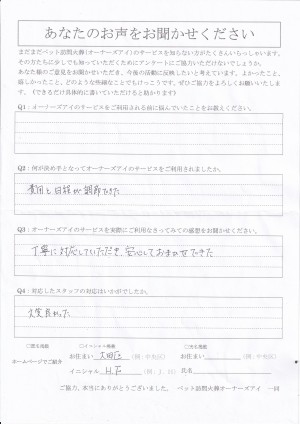 あなたのお声をお聞かせください
まだまだペット訪問火葬(オーナーズアイ)のサービスを知らない方がたくさんいらっしゃいます。
その方たちに少しでも知っていただくためにアンケートにご協力いただけないでしょうか。
あなた様のご意見をお聞かせいただき、今後の活動に反映したいと考えています。よかったこと、
嬉しかったこと、どのような些細なことでもけっこうです。ぜひ協力をよろしくお願いいたしま
す。（できるだけ具体的に書いていただけると助かります）
Q1：オーナーズアイのサービスをご利用される前に悩んでいたことをお教えください。
Q2：何が決め手となってオーナーズアイのサービスをご利用されましたか。
費用と日程が調節できた
Q3：オーナーズアイのサービスを実際にご利用なさってみての感想をお聞かせください。
丁寧に対応していただき、安心しておまかせできた
Q4：対応したスタッフの対応はいかがでしたか。
大変良かった
□匿名掲載 □イニシャル掲載 □実名掲載
ホームページでご紹介
お住まい 大田区 (例：中央区) お住まい (例：中央区)
イニシャル (例：J．H) 氏名
ご協力、本当にありがとうございました。 ペット訪問火葬オーナーズアイ 一同